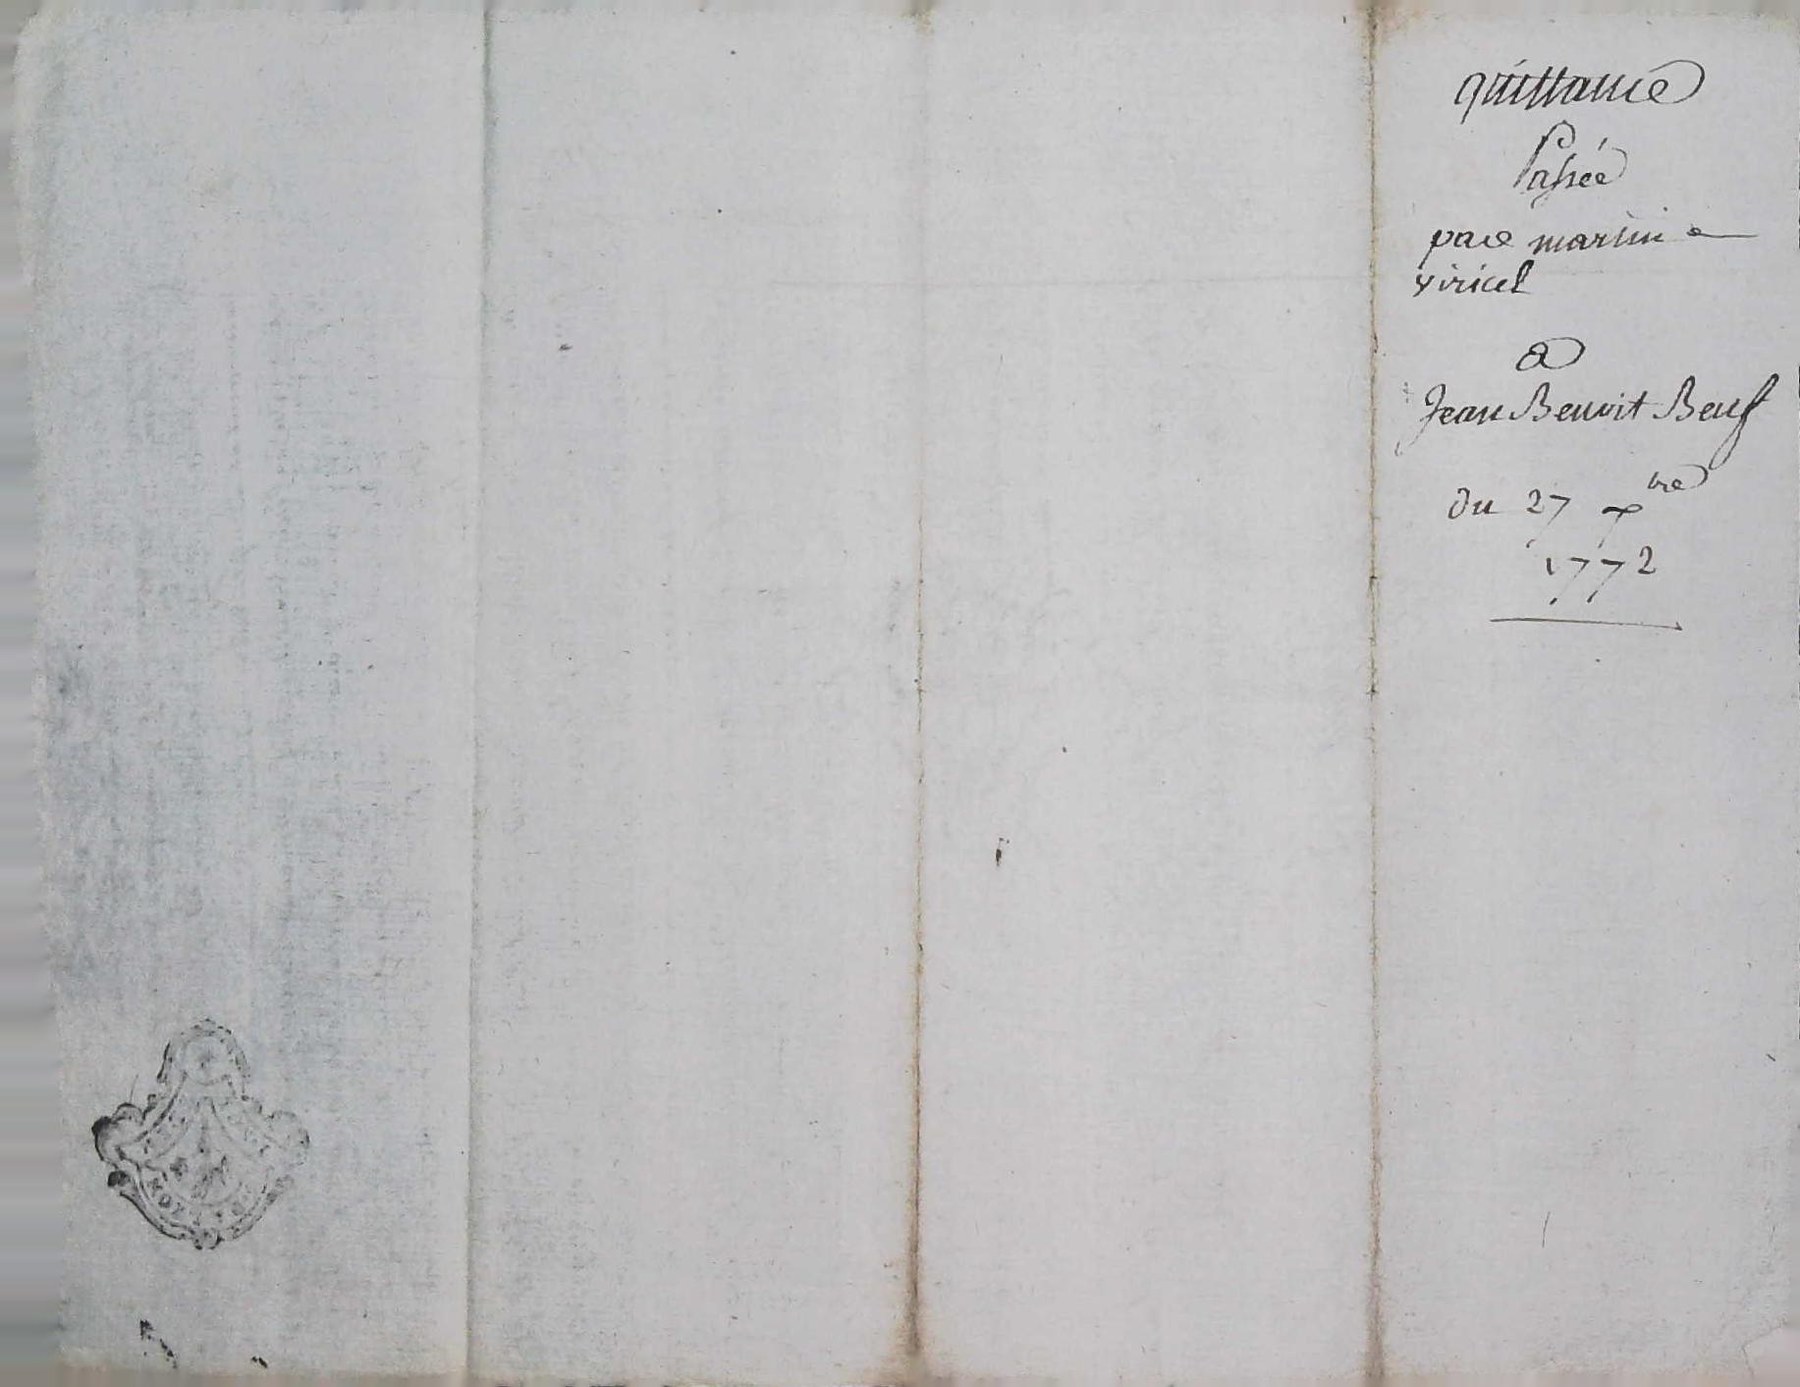 quittance
Passée
par martin
viricel
a
Jean Benoit Beuf
du 27 xbre
1772